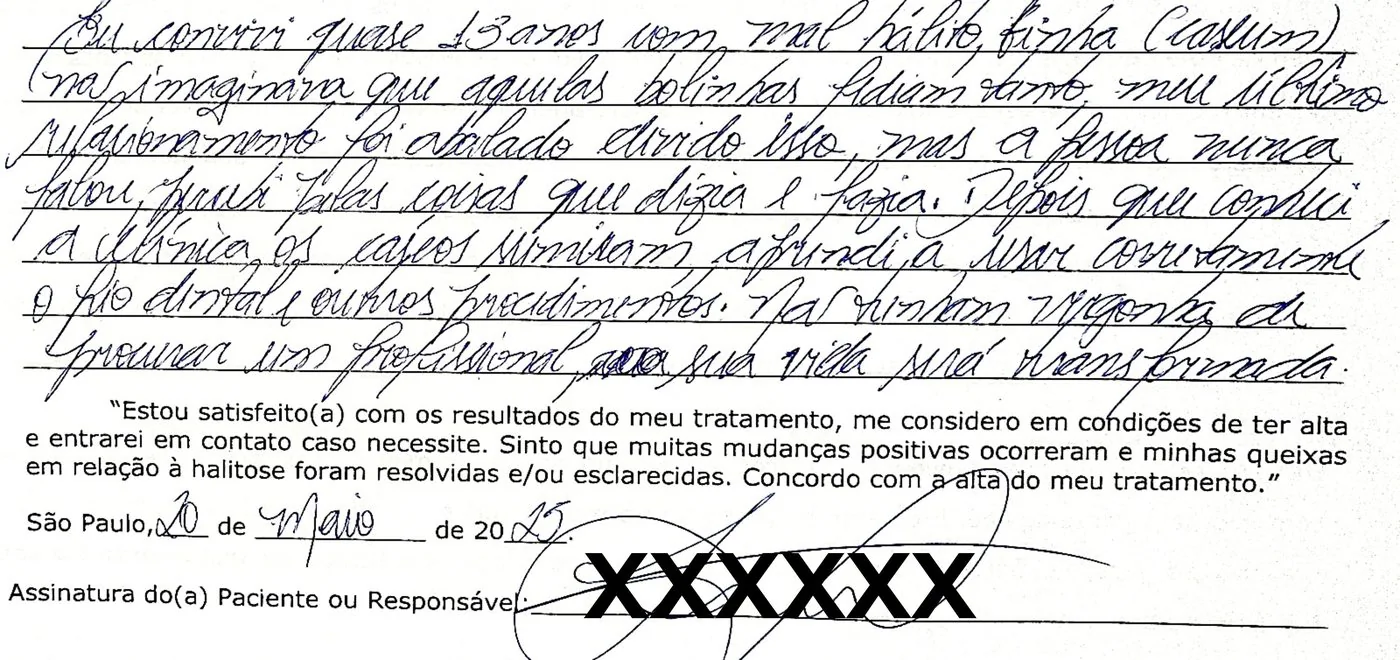 Eu convivi quase 13 anos com mal hálito, tinha (caseum)
não imaginava que aquelas bolinhas fediam tanto, meu último
relacionamento foi abalado divido isso, mas a pessoa nunca
falou, percebi pelas coisas que dizia e fazia. Depois que conheci
a clínica, os cáseos sumiram, aprendi a usar corretamente
o fio dental e outros procedimentos. Não tenham vergonha de
procurar um profissional, sua vida será transformada.
"Estou satisfeito(a) com os resultados do meu tratamento, me considero em condições de ter alta
e entrarei em contato caso necessite. Sinto que muitas mudanças positivas ocorreram e minhas queixas
em relação à halitose foram resolvidas e/ou esclarecidas. Concordo com a alta do meu tratamento."
São Paulo, 20 de Maio de 2025.
Assinatura do(a) Paciente ou Responsável: XXXXXX